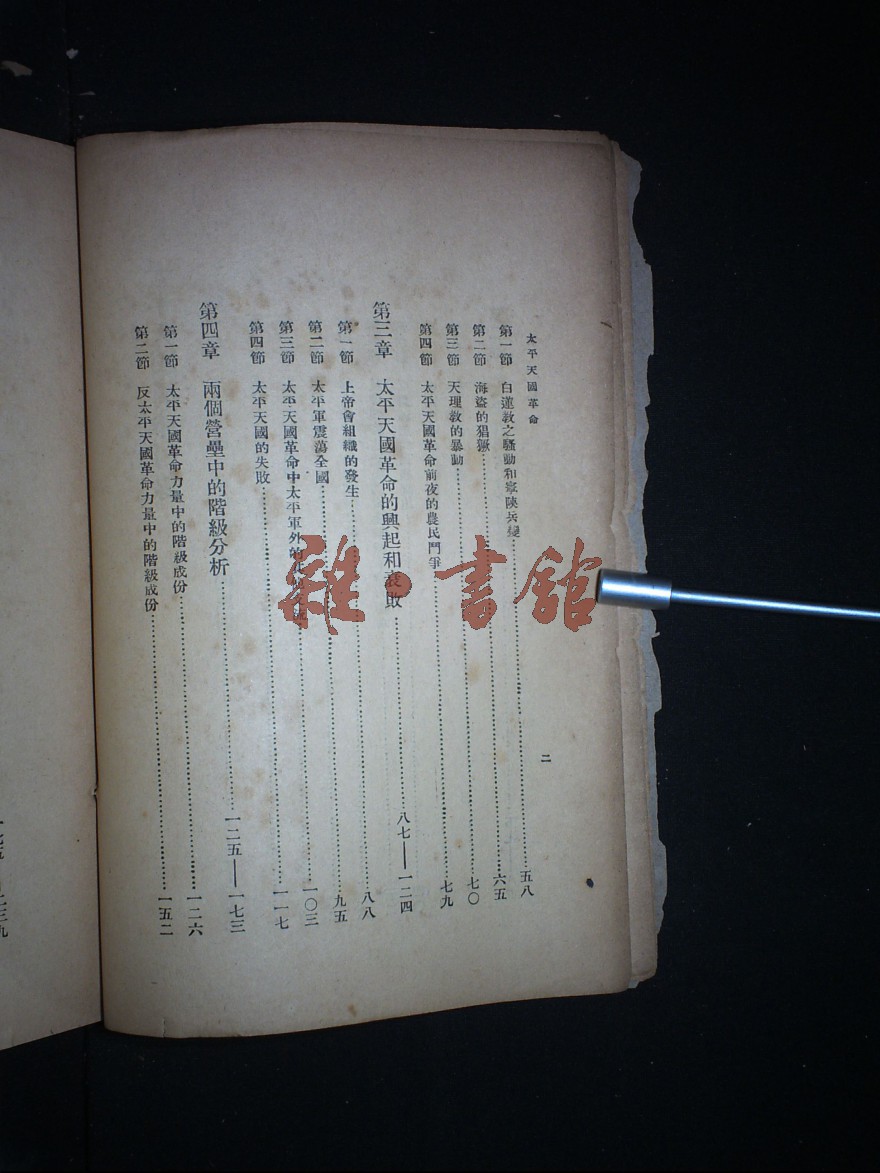 太平天國革命 二
第一節 白蓮教之騷動和寧陝兵變……五八
第二節 海盜的猖獗……六五
第三節 天理教的暴動……七〇
第四節 太平天國革命前夜的農民鬥爭……七九
第三章 太平天國革命的興起和衰敗……八七——一二四
第一節 上帝會組織的發生……八八
第二節 太平軍震蕩全國……九五
第三節 太平天國革命中太平軍外的……一〇三
第四節 太平天國的失敗……一一七
第四章 兩個營壘中的階級分析……一二五——一七三
第一節 太平天國革命力量中的階級成份……一二六
第二節 反太平天國革命力量中的階級成份……一五二
雜·書館